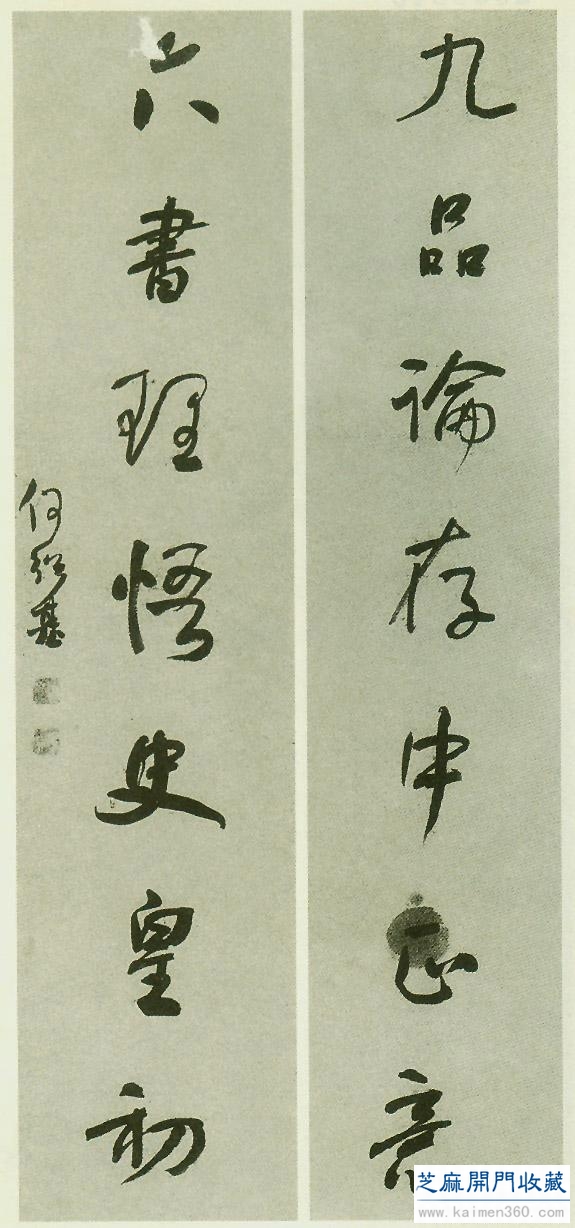 九品論存中正
六書理悟史皇初
何紹基
芝麻開門收藏
www.kaimen360.com